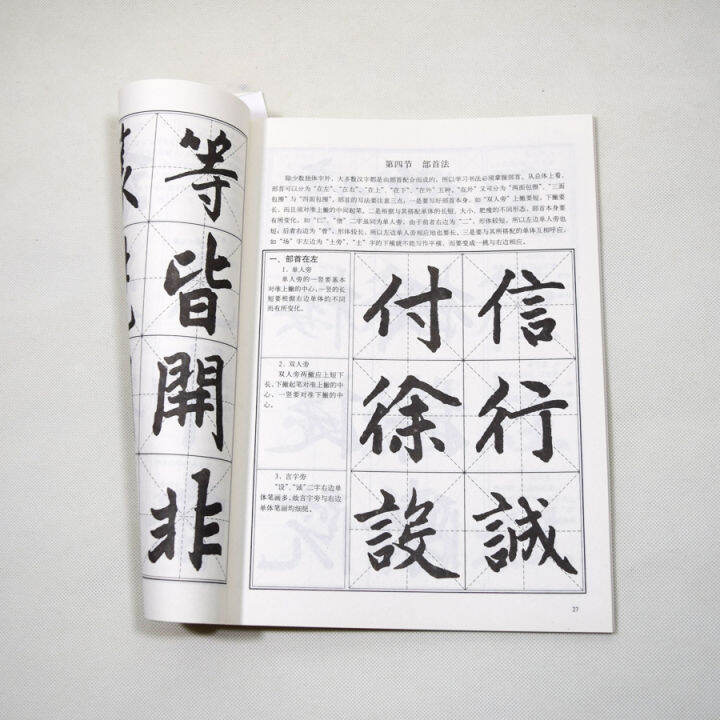 等
皆
開
非
第四节 部首法
除少数独体字外，大多数汉字都是由部首配合而成的，所以学习书法必须掌握部首。从总体上看，
部首可以分为“在左”、“在右”、“在上”、“在下”、“在外”五种，“在外”又可分为“两面包围”、“三面
包围”与“四面包围”。部首的写法要注意三点：一是要写好部首本身，如“双人旁”上撇要短，下撇要
长，而且须对准上撇的中间起笔。二是所据与其搭配单体的长短、大小、肥瘦的不同形态，部首本身要
有所变化，如“仁”、“僧”二字虽同为单人旁，由于前者右边为“二”，形体较短，所以左边单人旁也
短；后者右边为“曾”，形体较长，所以左边单人旁相应地也要长。三是要与其所搭配的单体互相呼应，
如“场”字左边为“土旁”，“土”字的下横就不能写作平横，而要变成一挑与右边相应。
一、部首在左
1、单人旁
单人旁的一竖要基本
对准上撇的中心，一竖的长
短要根据右边单体的不同
而有所变化。
付 信
2、双人旁
双人旁两撇应上短下
长，下撇起笔对准上撇的中
心，一竖要对准下撇的中
心。
徐 行
3、言字旁
“设”、“诚”二字右边单
体笔画多，故言字旁与右边
单体笔画均细挺。
設 誠
27